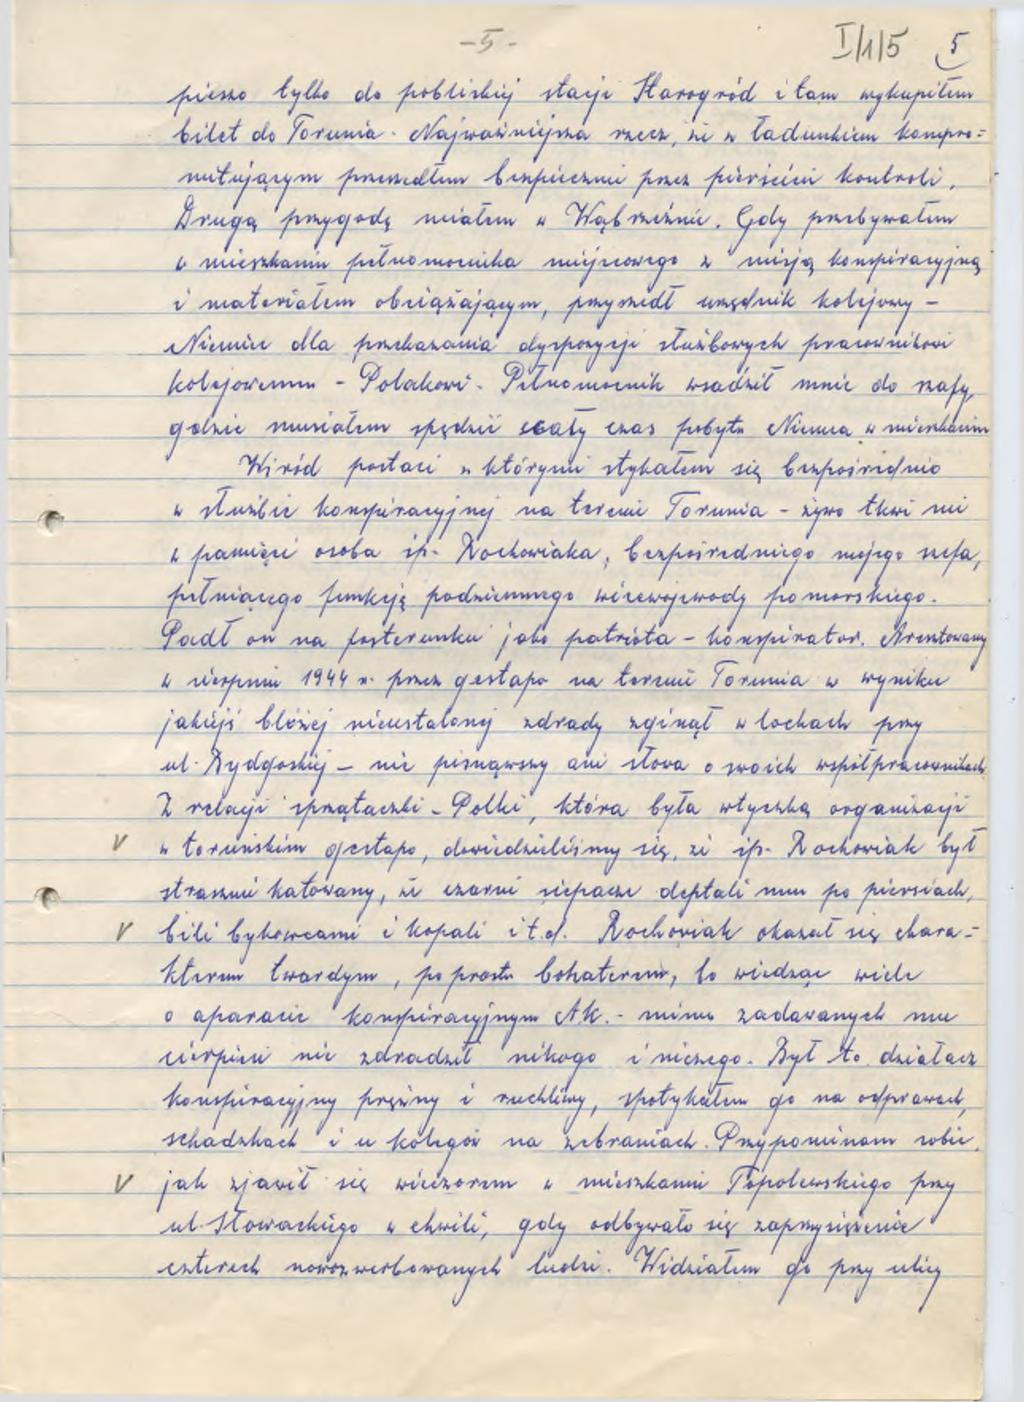 -5-
I/1/5 5
pieszo tylko do pobliskiej stacji Starogród i tam wykupiłem
bilet do Torunia. Najważniejsza rzecz, że z ładunkiem kompro=
mitującym przeszedłem bezpiecznie przez pierścień kontroli.
Drugą przygodę miałem w Wąbrzeźnie. Gdy przebywałem
w mieszkaniu pełnomocnika miejscowego z misją konspiracyjną
i materiałem obciążającym, przyszedł urzędnik kolejowy -
Niemiec dla przekazania dyspozycji służbowych pracownikowi
kolejowemu - Polakowi. Pełnomocnik wsadził mnie do szafy,
gdzie musiałem spędzić cały czas pobytu Niemca w mieszkaniu
Wśród postaci z którymi stykałem się bezpośrednio
w służbie konspiracyjnej na terenie Torunia - żywo tkwi mi
w pamięci osoba śp. Rochowiaka, bezpośredniego mojego szefa,
pełniącego funkcję podziemnego wicewojewody pomorskiego.
Padł on na posterunku jako patriota - konspirator. Aresztowany
w sierpniu 1944 r. przez gestapo na terenie Torunia w wyniku
jakiejś bliżej nieustalonej zdrady zginął w lochach przy
ul. Bydgoskiej - nie pisnąwszy ani słowa o swoich współpracownikach
Z relacji sprzątaczki - Polki, która była wtyczką organizacji
V w toruńskim gestapo, dowiedzieliśmy się, że śp. Rochowiak był
strasznie katowany, że czarni siepacze deptali mu po piersiach,
V bili bykowcami i kopali i t.d. Rochowiak okazał się chara-
kterem twardym, po prostu bohaterem, bo wiedząc wiele
o aparacie konspiracyjnym AK. - mimo zadawanych mu
cierpień nie zdradził nikogo i niczego. Był to działacz
konspiracyjny prężny i ruchliwy, spotykałem go na odprawach,
schadzkach i u kolegów na zebraniach. Przypominam sobie,
V jak zjawił się wieczorem w mieszkaniu Topolewskiego przy
ul. Słowackiego w chwili, gdy odbywało się zaprzysiężenie
czterech nowozwerbowanych ludzi. Widziałem go przy ulicy